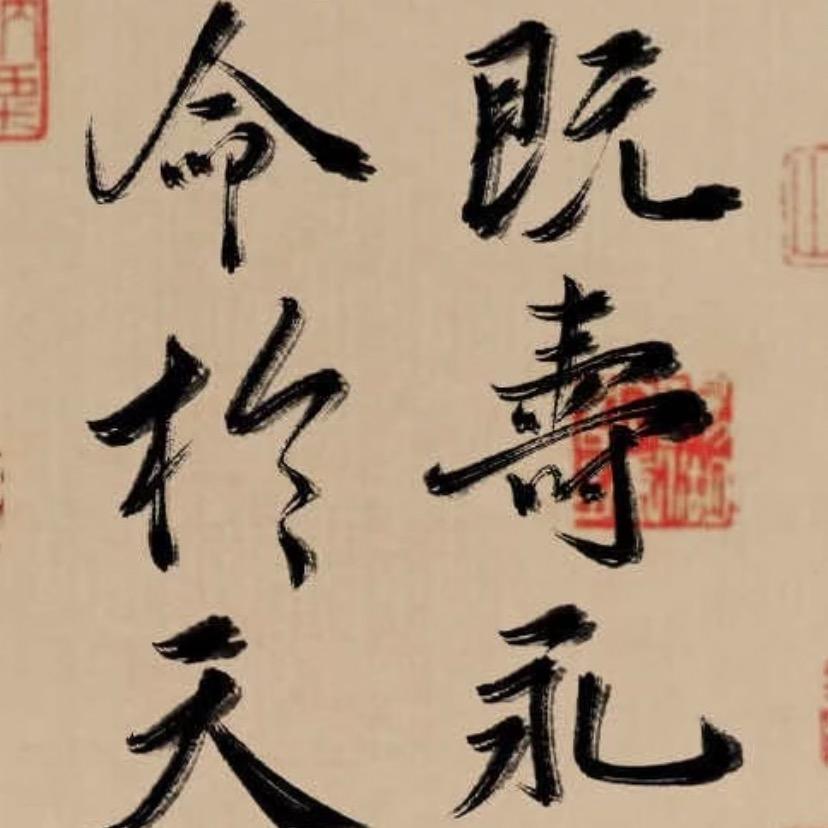 既壽永
命於天